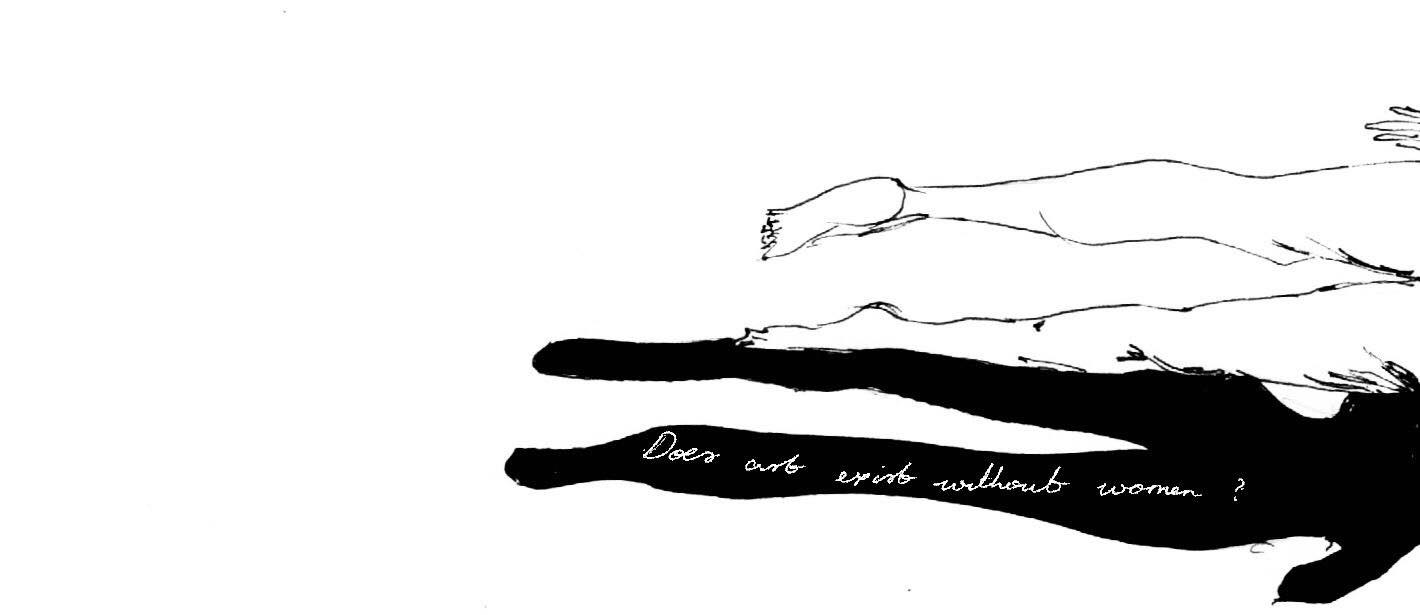 Does art exist without women ?